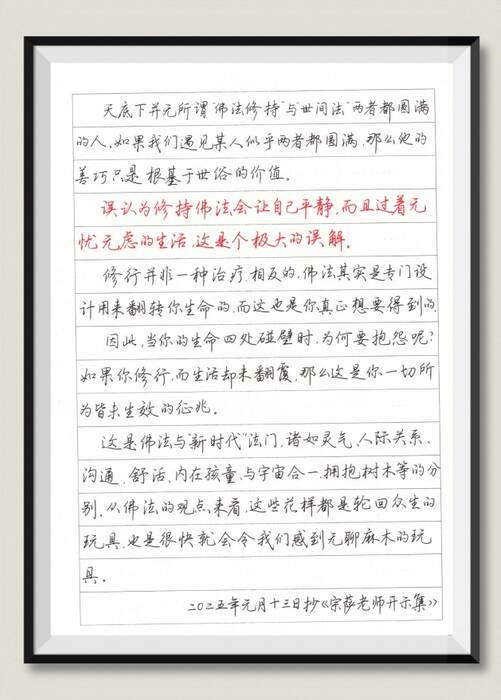 天底下并无所谓“佛法修持”与“世间法”两者都圆满
的人。如果我们遇见某人似乎两者都圆满,那么他的
善巧只是根基于世俗的价值。
误认为修持佛法,会让自己平静,而且过着无
忧无虑的生活,这是个极大的误解。
修行并非一种治疗,相反的,佛法其实是专门设
计用来翻转你生命的,而这也是你真正想要得到的。
因此,当你的生命四处碰壁时,为何要抱怨呢?
如果你修行,而生活却未翻覆,那么这是你一切所
为皆未生效的征兆。
这是佛法与“新时代”法门,诸如灵气、人际关系、
沟通、舒活、内在孩童、与宇宙合一、拥抱树木等的分
别。从佛法的观点来看,这些花样都是轮回众生的
玩具,也是很快就会令我们感到无聊麻木的玩
具。
二〇二五年元月十三日抄《宗萨老师开示集》